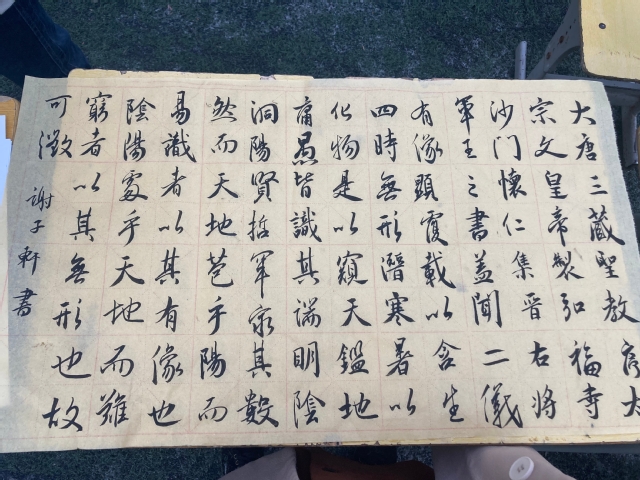 大唐三藏聖教序大
宗文皇帝製弘福寺
沙门懷仁集晋右將
軍王之書蓋聞二儀
有像顯覆載以含生
四時無形潛寒暑以
化物是以窺天鑑地
庸愚皆識其端明陰
洞陽賢哲罕窮其數
然而天地苞乎陽而
易識者以其有像也
陰陽處乎天地而難
窮者以其無形也故
可徵
謝子軒書